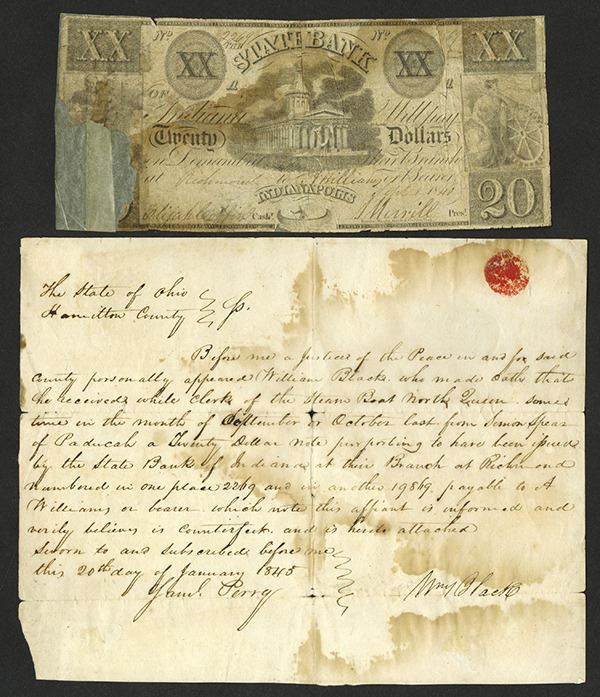 XX No 2269 STATE BANK No XX
XX XX
A A
OF
Indiana Will pay
Twenty Dollars
on Demand at their Branch
at Richmond to A Williams or Bearer
INDIANAPOLIS
Cash.r S Merrill Pres.t
20
The State of Ohio
Hamilton County } Ss.
Before me a Justice of the Peace in and for said
County personally appeared William Black who made Oath that
he received while Clerk of the Steam Boat North Queen some
time in the month of September or October last from Simon Spear
of Paducah a Twenty Dollar note purporting to have been issued
by the State Bank of Indiana at their Branch at Richmond
numbered in one place 2269 and in another 19869 payable to A
Williams or bearer which note this affiant is informed and
verily believes is Counterfeit and is hereto attached
Sworn to and subscribed before me
this 20th day of January 1845
Saml. Perry Wm Black